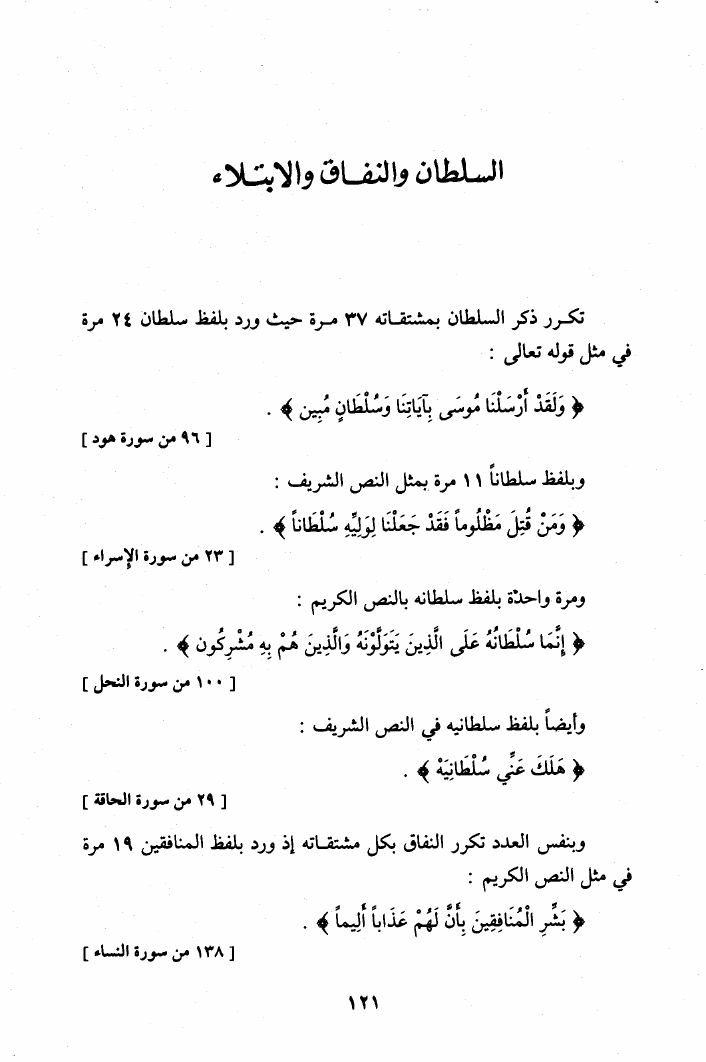 السلطان والنفاق والابتلاء
تكرر ذكر السلطان بمشتقاته ٣٧ مرة حيث ورد بلفظ سلطان ٢٤ مرة
في مثل قوله تعالى :
﴿ وَلَقَدْ أَرْسَلْنَا مُوسَى بِآيَاتِنَا وَسُلْطَانٍ مُبِين ﴾ .
[ ٩٦ من سورة هود ]
وبلفظ سلطاناً ١١ مرة بمثل النص الشريف :
﴿ وَمَنْ قُتِلَ مَظْلُوماً فَقَدْ جَعَلْنَا لِوَلِيِّهِ سُلْطَاناً ﴾ .
[ ٢٣ من سورة الإسراء ]
ومرة واحدة بلفظ سلطانه بالنص الكريم :
﴿ إِنَّمَا سُلْطَانُهُ عَلَى الَّذِينَ يَتَوَلَّوْنَهُ وَالَّذِينَ هُمْ بِهِ مُشْرِكُون ﴾ .
[ ١٠٠ من سورة النحل ]
وأيضاً بلفظ سلطانيه في النص الشريف :
﴿ هَلَكَ عَنِّي سُلْطَانِيَهْ ﴾ .
[ ٢٩ من سورة الحاقة ]
وبنفس العدد تكرر النفاق بكل مشتقاته إذ ورد بلفظ المنافقين ١٩ مرة
في مثل النص الكريم :
﴿ بَشِّرِ الْمُنَافِقِينَ بِأَنَّ لَهُمْ عَذَاباً أَلِيماً ﴾ .
[ ١٣٨ من سورة النساء ]
١٢١